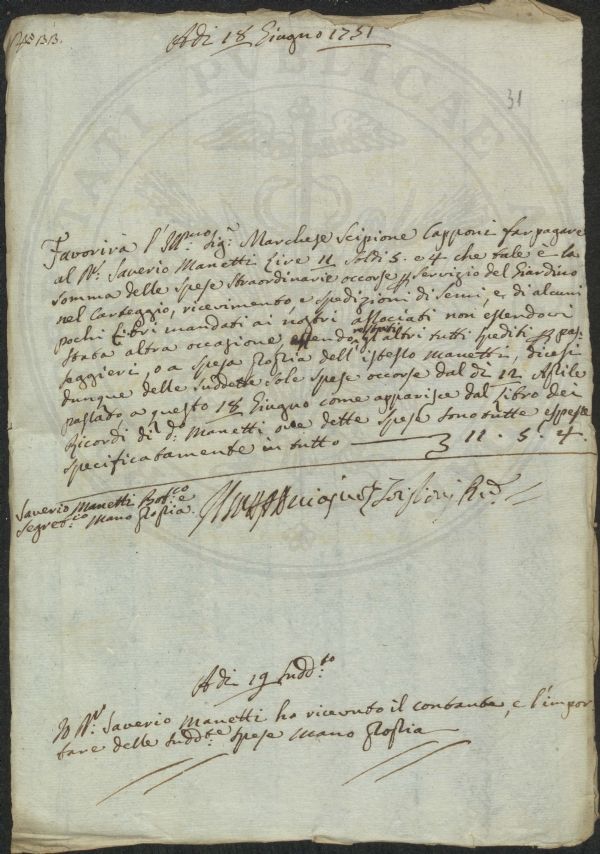 N° 1313.
Adi 18 Giugno 1751
31
Favorirà l'Ill.mo Sig.r Marchese Scipione Capponi far pagare
al D.r Saverio Manetti Lire 11 Soldi 5 e 4 che tale è la
somma delle spese straordinarie occorse p servizio del Giardino
nel Carteggio, ricevimento, e spedizioni di semi, e di alcuni
pochi libri mandati ai nostri associati non essendovi
stata altra occasione, essendo restati gl'altri tutti spediti p pas-
seggieri, o a spesa ppria dell'istesso Manetti, dicesi
dunque delle suddette sole spese occorse dal dì 12 Aprile
passato a questo 18 Giugno come apparisce dal libro dei
Ricordi di d.o Manetti ove dette spese sono tutte espresse
specificatamente in tutto — 11 . 5 . 4.
Saverio Manetti Bot.co e
Segret.io Mano ppria.
Adi 19 Sudd.to
Io D.r Saverio Manetti ho ricevuto il contante, e l'impor
tare delle sudd.te spese Mano ppria
TATI PVBLICAE